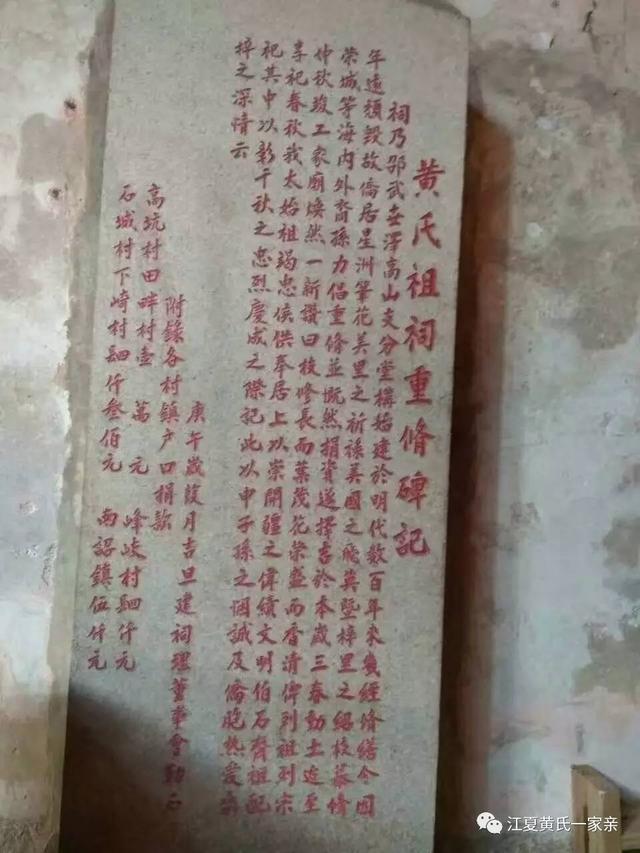 黄氏祖祠重脩碑記
祠乃邵武壺澤高山支分堂構始建於明代數百年來幾經脩繕今因
年遠頽毀故僑居星洲筆花美里之祈祿美國之飛英暨梓里之紹枝慕脩
榮城等海內外裔孫力倡重脩並慨然捐資遂擇吉於本歲三春動土迄至
仲秋竣工家廟煥然一新讚曰枝修長而葉茂花榮盛而香清俾列祖列宗
享祀春秋我太始祖竭忠侯供奉居上以崇開疆之偉績文明伯石齋祖配
祀其中以彰千秋之忠烈慶成之際記此以申子孫之悃誠及僑胞熱愛桑
梓之深情云
庚午歲葭月吉旦建祠理董事會勒石
附錄各村鎮户口捐款
高坑村田畔村壹萬元 峰岐村肆仟元
石城村下崎村肆仟叁佰元 南詔鎮伍仟元
江夏黄氏一家亲